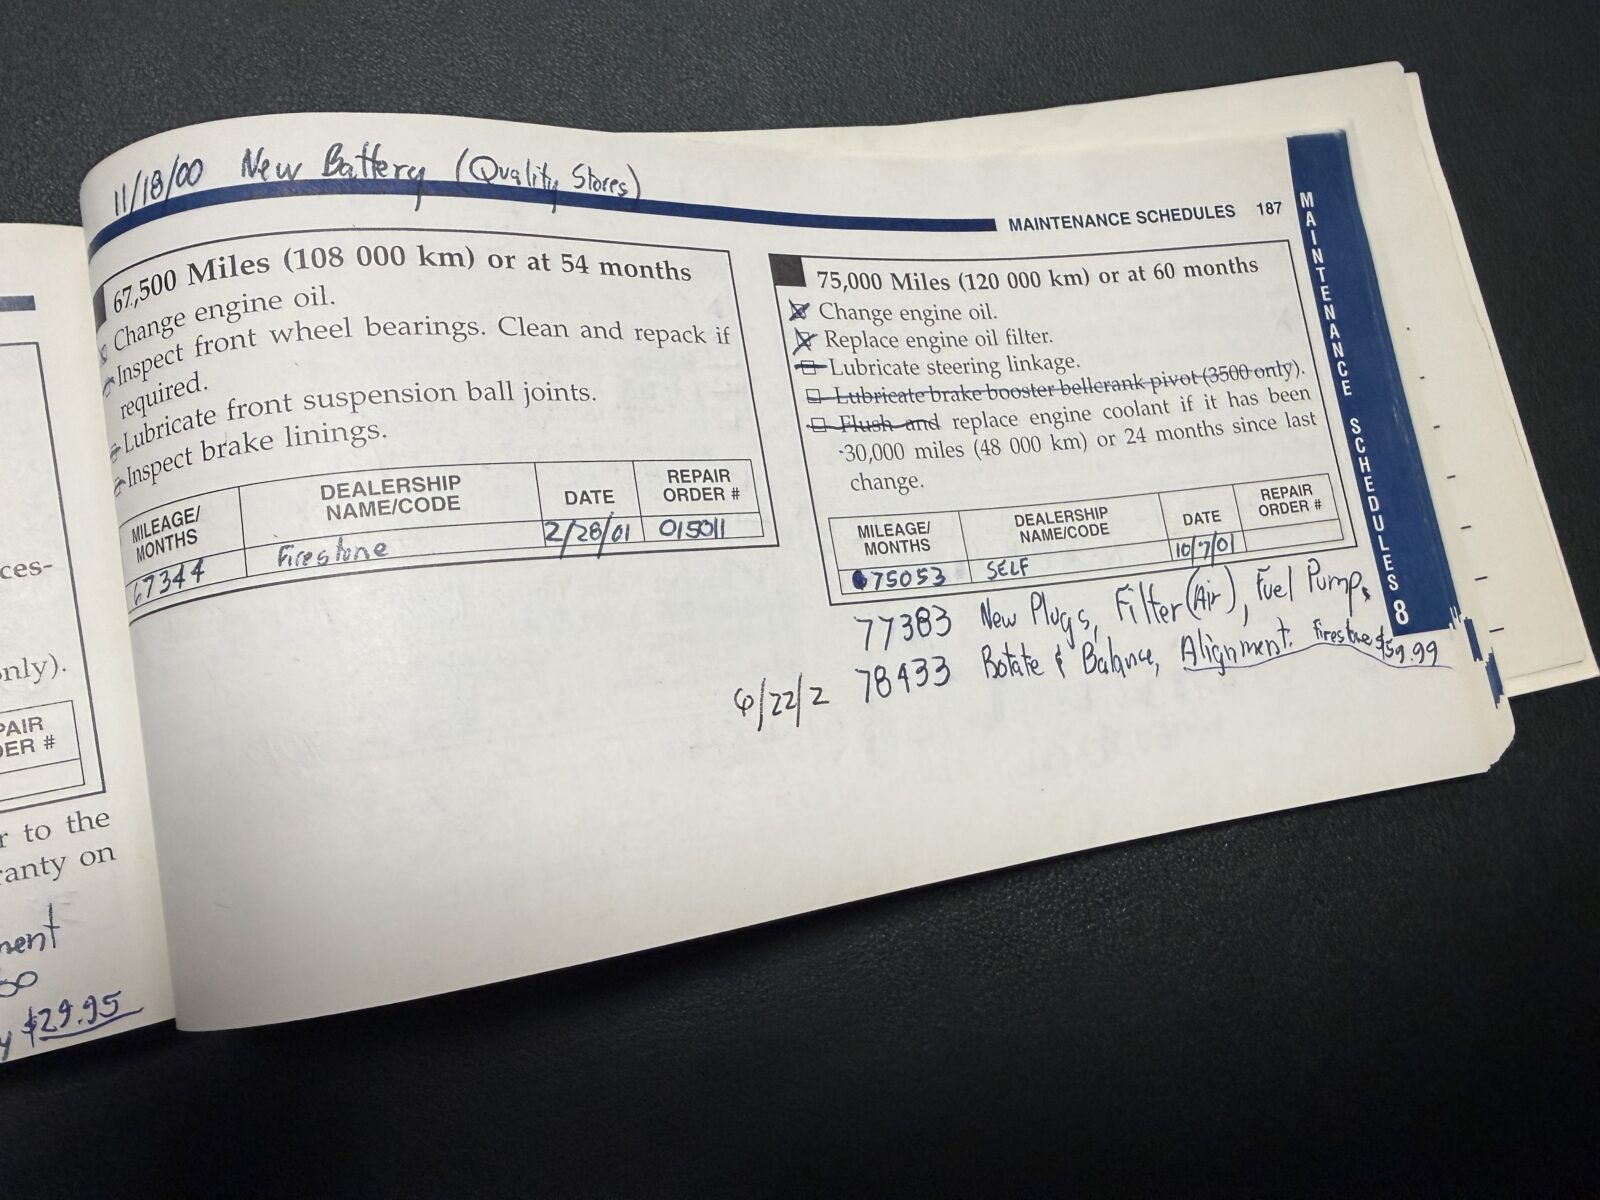 11/18/00 New Battery (Quality Stores)
MAINTENANCE SCHEDULES 187
67,500 Miles (108 000 km) or at 54 months
Change engine oil.
Inspect front wheel bearings. Clean and repack if
required.
Lubricate front suspension ball joints.
Inspect brake linings.
MILEAGE/
MONTHS
DEALERSHIP
NAME/CODE
DATE
REPAIR
ORDER #
67344 Firestone 2/28/01 015011
75,000 Miles (120 000 km) or at 60 months
Change engine oil.
Replace engine oil filter.
Lubricate steering linkage.
Lubricate brake booster bellcrank pivot (3500 only).
Flush and replace engine coolant if it has been
30,000 miles (48 000 km) or 24 months since last
change.
MILEAGE/
MONTHS
DEALERSHIP
NAME/CODE
DATE
REPAIR
ORDER #
75053 SELF 10/7/01
77383 New Plugs, Filter (Air), Fuel Pump.
6/22/2 78433 Rotate & Balance, Alignment. Firestone $59.99
MAINTENANCE SCHEDULES 8
ces-
nly).
PAIR
DER #
r to the
ranty on
ment
50
y $29.95